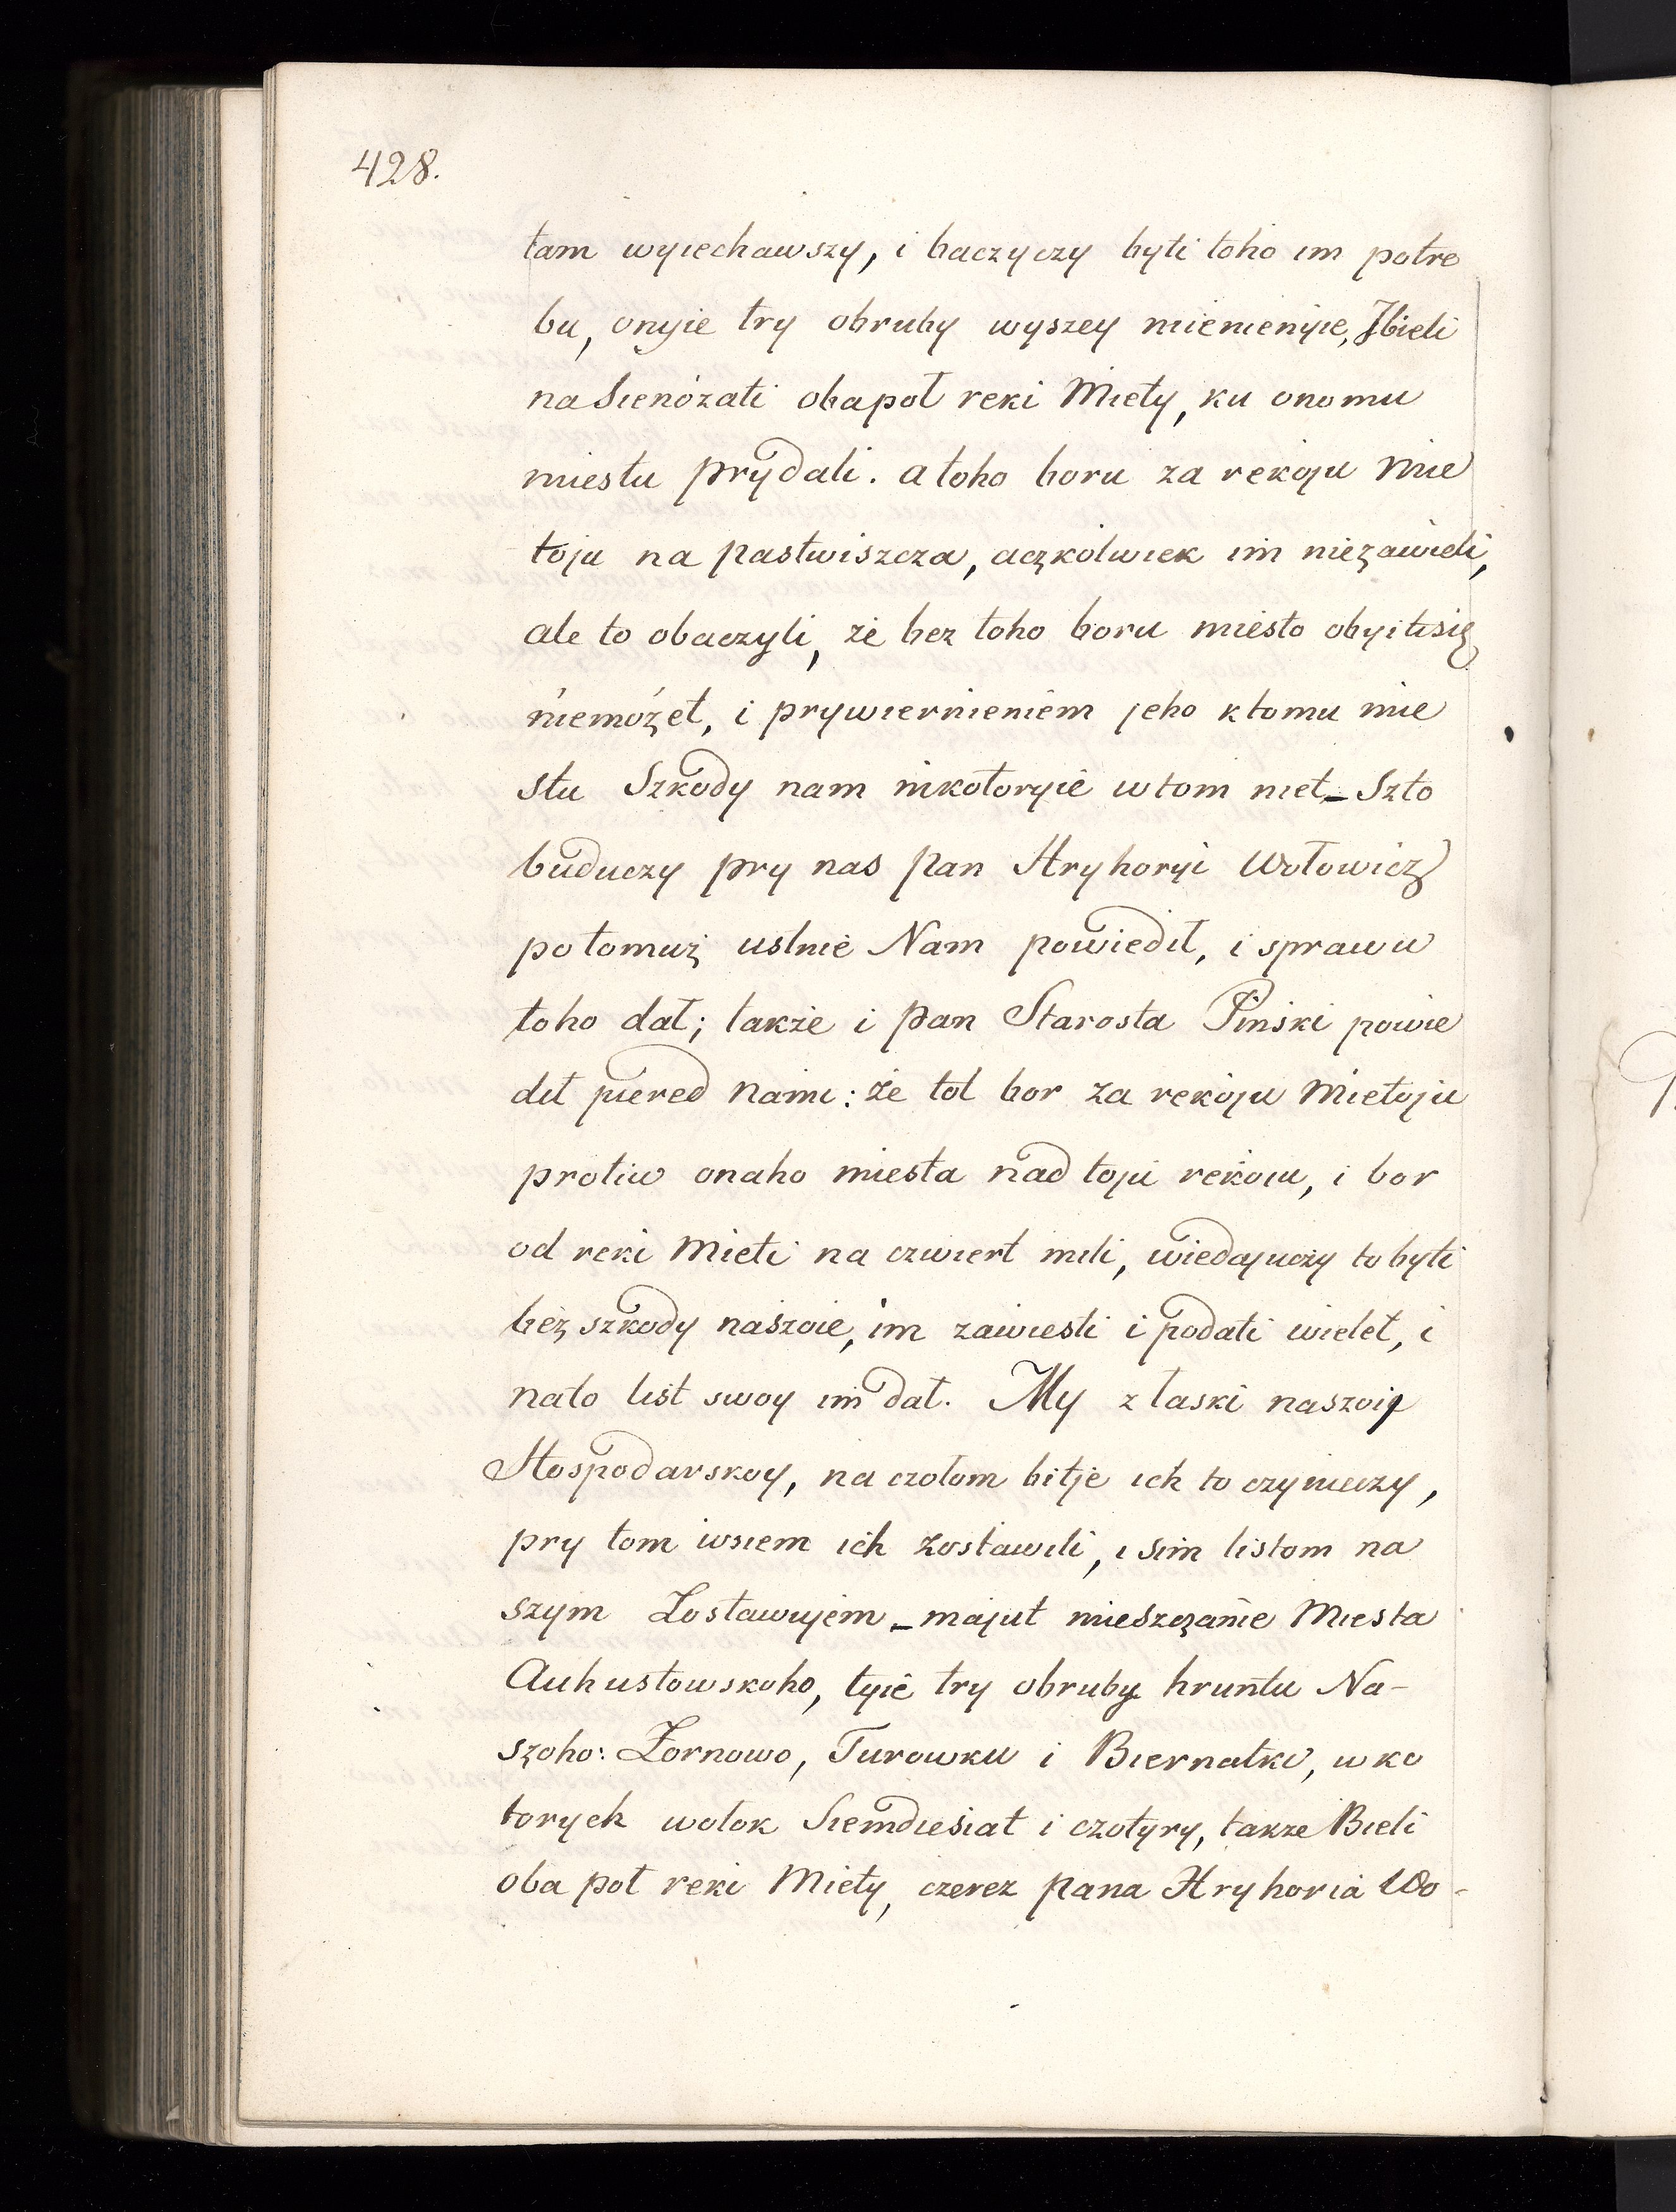 428.
tam wyiechawszy, i baczyczy byti toho im potre
bu, onyie try obruby wyszey mienienyie, Jbieli
na Sienóżati obapoł reki Miety, ku onomu
miestu prydali. a toho boru za rekoju Mie
toju na pastwiszcza, aczkolwiek im niezawieli,
ale to obaczyli, że bez toho boru miesto obyitisię
niemożet, i prywiernieniem jeho ktomu mie
stu Szkody nam nikotoryie wtom niet_ Szto
buduczy pry nas pan Hryhoryi Wołowicz
potomuż ustnie Nam powiedił, i sprawu
toho dał; także i pan Starosta Pinski powie
dił piered Nami: że tot bor za rekoju Mietoju
protiw onaho miesta nad toju rekoiu, i bor
od reki Mieti na czwiert mili, wiedajuczy to byti
bez szkody naszoie, im zawiesti i podati wielet, i
nato list swoy im dał. My z łaski naszoię
Hospodarskoy, na czołom bitje ich to czynieczy,
pry tom wsiem ich zostawili, i sim listom na
szym Zostawujem _ majut mieszczanie Miesta
Auhustowskoho, tyie try obruby hruntu Na-
szoho: Żornowo, Turowku i Biernatki, w ko
torych wołok Siemdiesiat i czotyry, takze Bieli
oba poł reki Miety, czerez pana Hryhoria Wo-